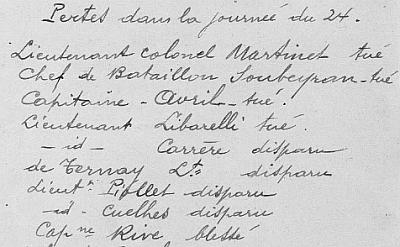 Pertes dans la journée du 24.
Lieutenant colonel Martinet tué
Chef de Bataillon Soubeyran - tué
Capitaine - Avril - tué.
Lieutenant Libarelli tué.
- id - Carrère disparu
de Ternay Lt disparu
Lieutt Piollet disparu
- id - Cuelhes disparu
Capne Rive blessé